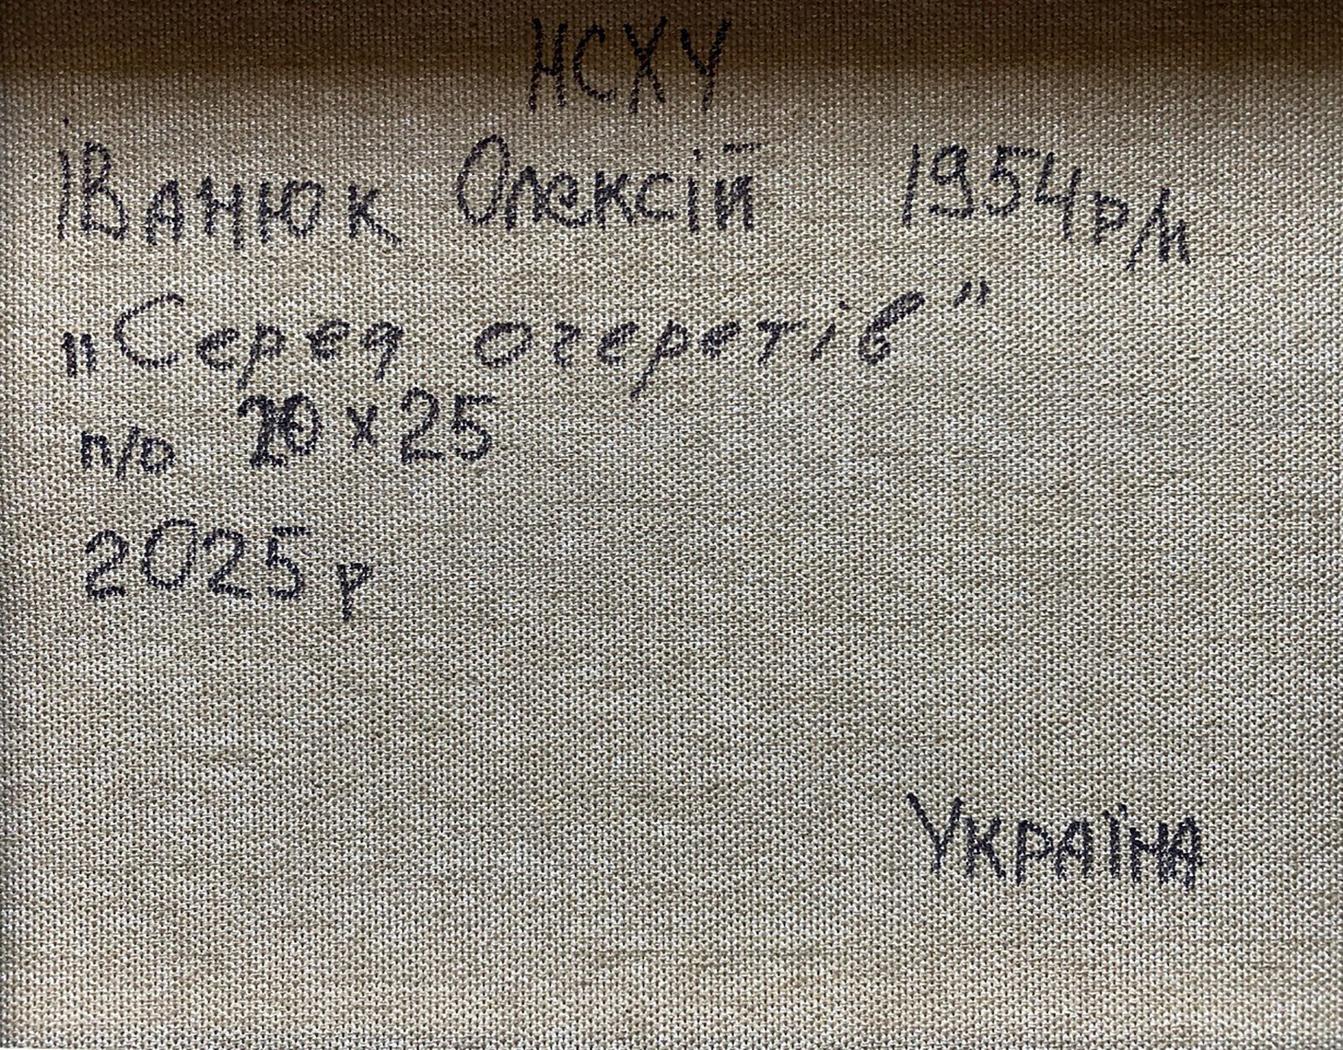 НСХУ
Іванюк Олексій 1954 р/н
„Серед очеретів”
п/о 20 х 25
2025 р
Україна